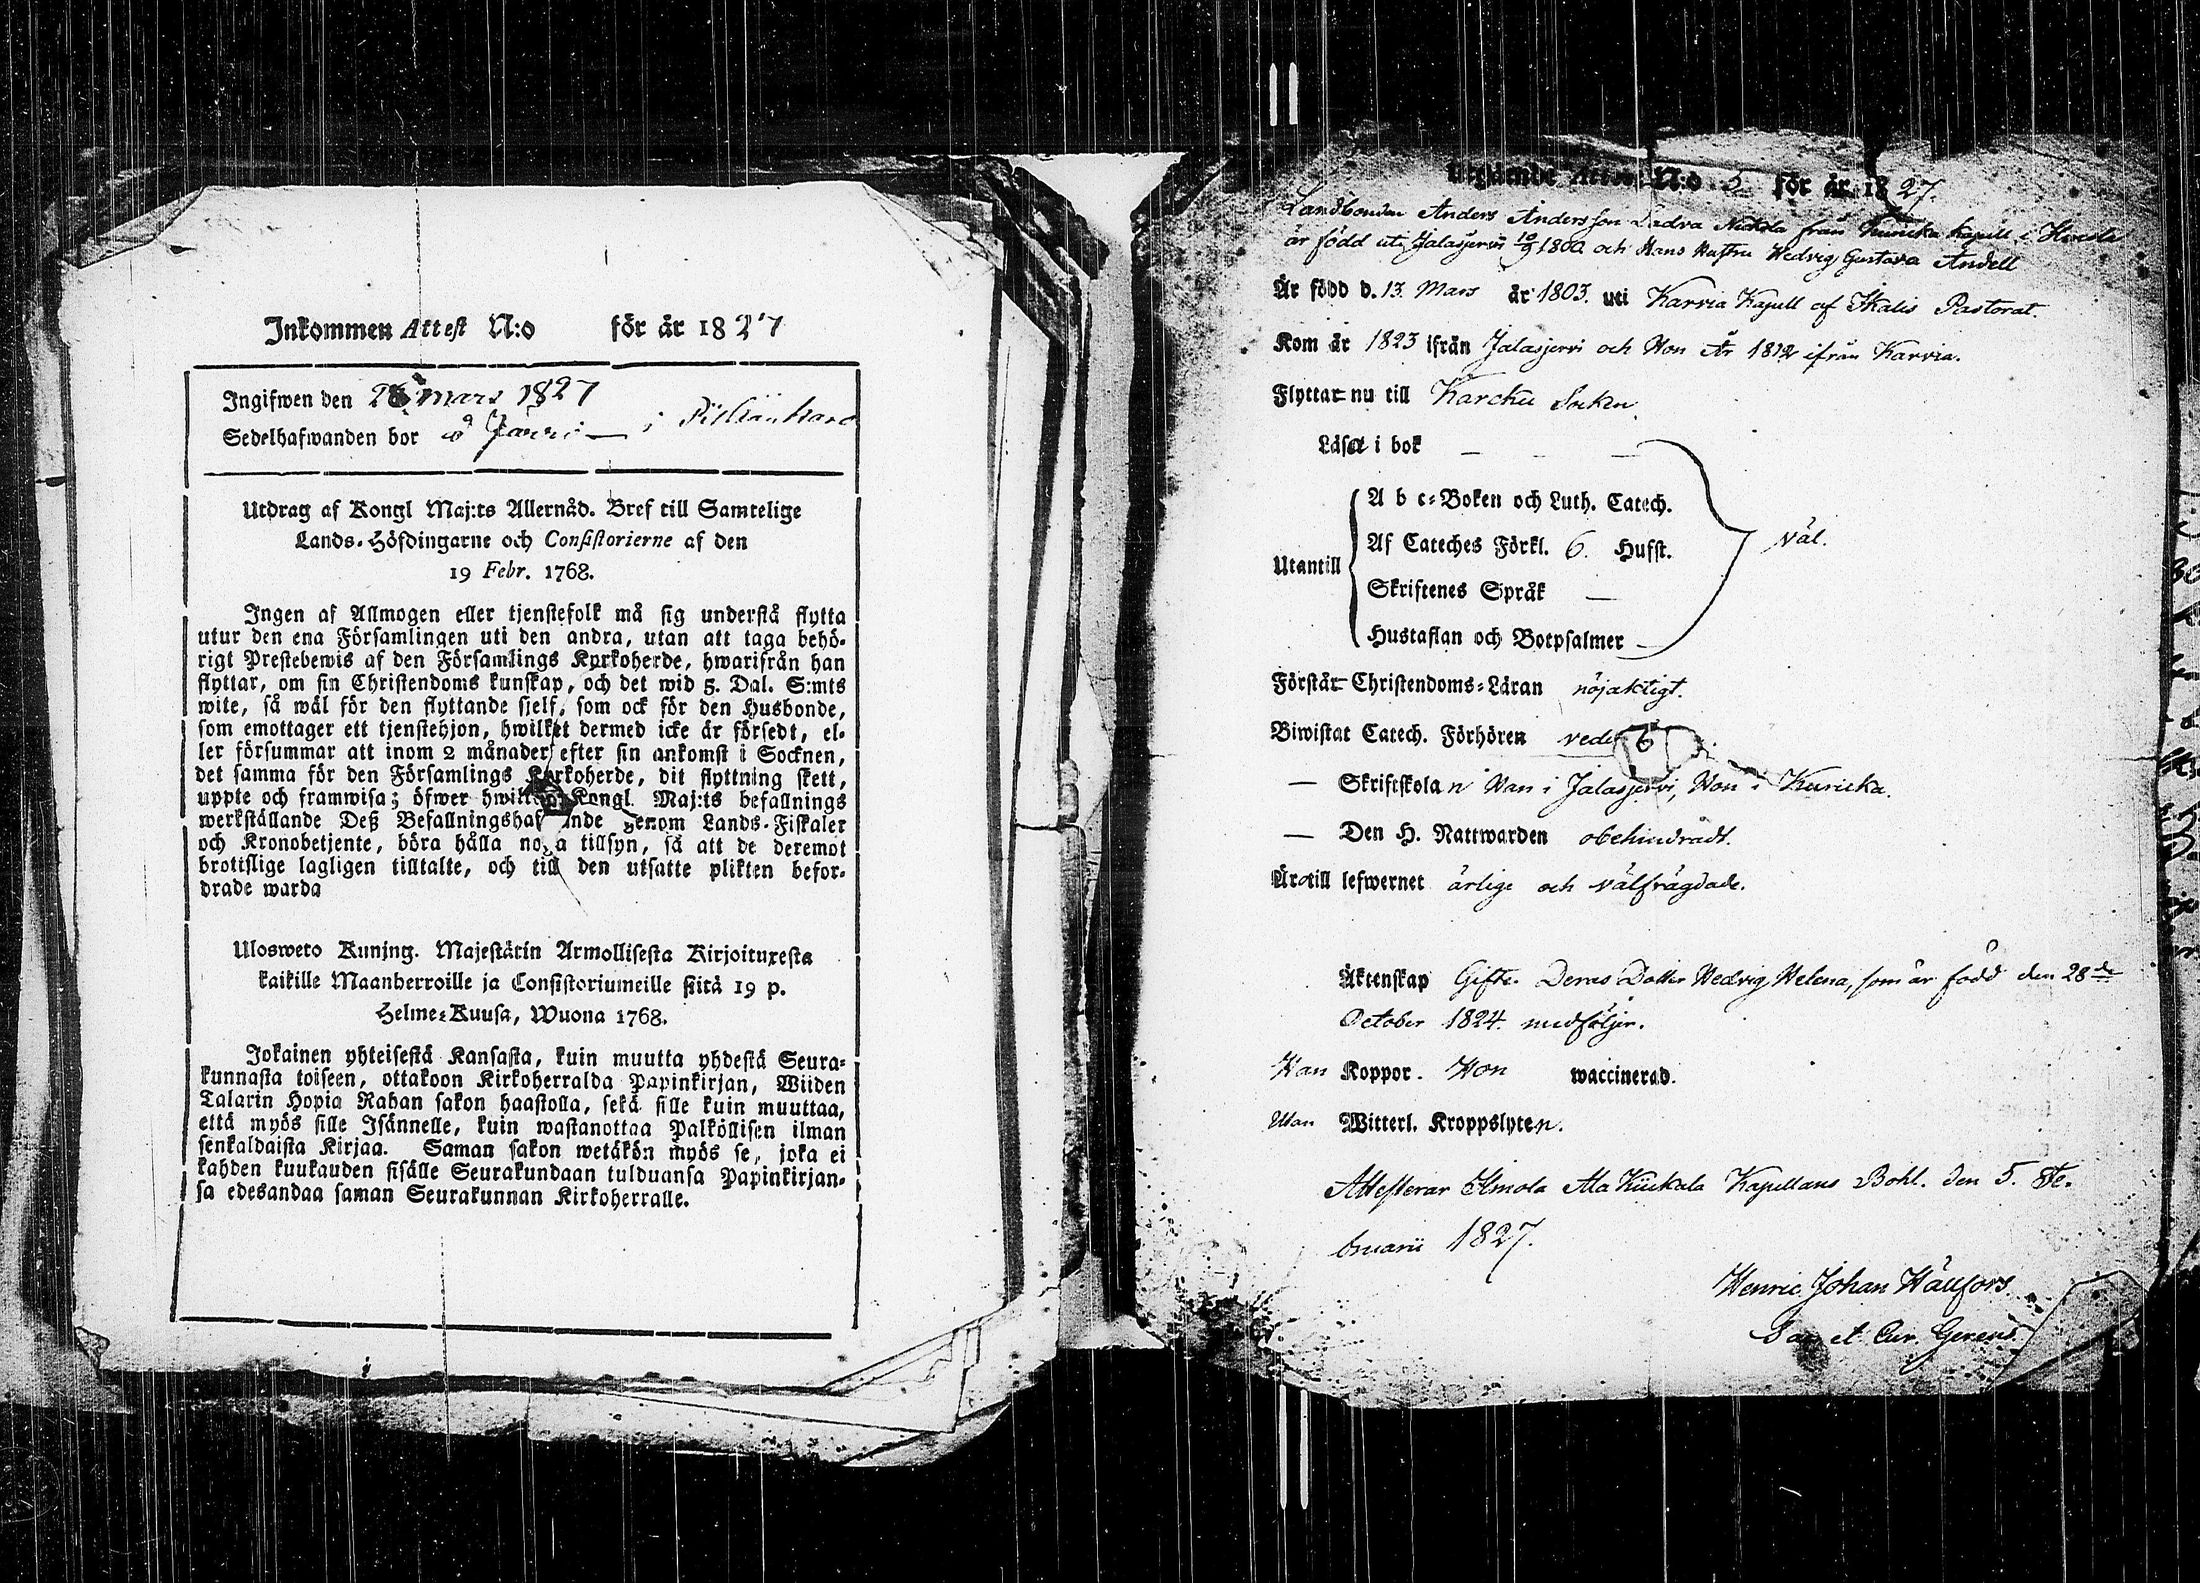 Inkommen Attest N:o för år 1827
Ingifwen den 28 Mars 1827
Sedelhafwanden bor å Järvi — i
Utdrag af Kongl Maj:ts Allernåd. Bref till Samtelige
Lands-Höfdingarne och Consistorierne af den
19 Febr. 1768.
Ingen af Allmogen eller tjenstefolk må sig understå flytta
utur den ena Församlingen uti den andra, utan att taga behö-
rigt Prestebewis af den Församlings Kyrkoherde, hwarifrån han
flyttar, om sin Christendoms kunskap, och det wid 5. Dal. S:mts
wite, så wäl för den flyttande sjelf, som ock för den Husbonde,
som emottager ett tjenstehjon, hwilket dermed icke är försedt, el-
ler försummar att inom 2 månader efter sin ankomst i Socknen,
det samma för den Församlings Kyrkoherde, dit flyttning skett,
uppte och framwisa; öfwer hwilket Kongl. Maj:ts befallnings
werkställande Deß Befallningshafwande genom Lands-Fiskaler
och Kronobetjente, böra hålla noga tillsyn, så att de deremot
brottslige lagligen tilltalte, och till den utsatte plikten befor-
drade warda
Ulosweto Kuning. Majestätin Armollisesta Kirjoituxesta
kaikille Maanherroille ja Consistoriumeille siitä 19 p.
Helme-Kuusa, Wuona 1768.
Jokainen yhteisestä Kansasta, kuin muutta yhdestä Seura-
kunnasta toiseen, ottakoon Kirkoherralda Papinkirjan, Wiiden
Talarin Hopia Rahan sakon haastolla, sekä sille kuin muuttaa,
että myös sille Isännelle, kuin wastanottaa Palköllisen ilman
senkaldaista Kirjaa. Saman sakon wetäkön myös se, joka ei
kahden kuukauden sisälle Seurakundaan tulduansa Papinkirjan-
sa edesandaa saman Seurakunnan Kirkoherralle.
Utgående Attest N:o 5 för år 1827.
Landbonden Anders Andersson Ladva Nickola från Kuricka Kapell i
är född uti Jalasjervi 10/9 1800. och Hans Hustru Hedvig Gustava Andell
Är född d. 13. Mars år 1803. uti Karvia Kapell af Ikalis Pastorat.
Kom år 1823 ifrån Jalasjervi och Hon År 1812 ifrån Karvia.
Flyttar nu till Karcku Socken.
Läsa i bok —
A b c-Boken och Luth. Catech.
Af Cateches Förkl. 6. Hufst. väl.
Utantill
Skriftenes Språk —
Hustaflan och Botpsalmer —
Förstår Christendoms-Läran nöjaktigt.
Biwistat Catech. Förhören
— Skriftskolan Han i Jalasjervi, Hon i Kuricka.
— Den H. Nattwarden obehindradt.
Äro till lefwernet ärlige och välfrägdade.
Äktenskap Gifte. Deras Dotter Hedvig Helena, som är född den 28de
October 1824. medföljer.
Han Koppor. Hon waccinerad.
Utan Witterl. Kroppslyten.
Attesterar Ilmola Ala Kückala Kapellans Bohl. den 5. Fe-
bruarii 1827.
Henric Johan Hällfors.
Sac. et Cur. Gerens.